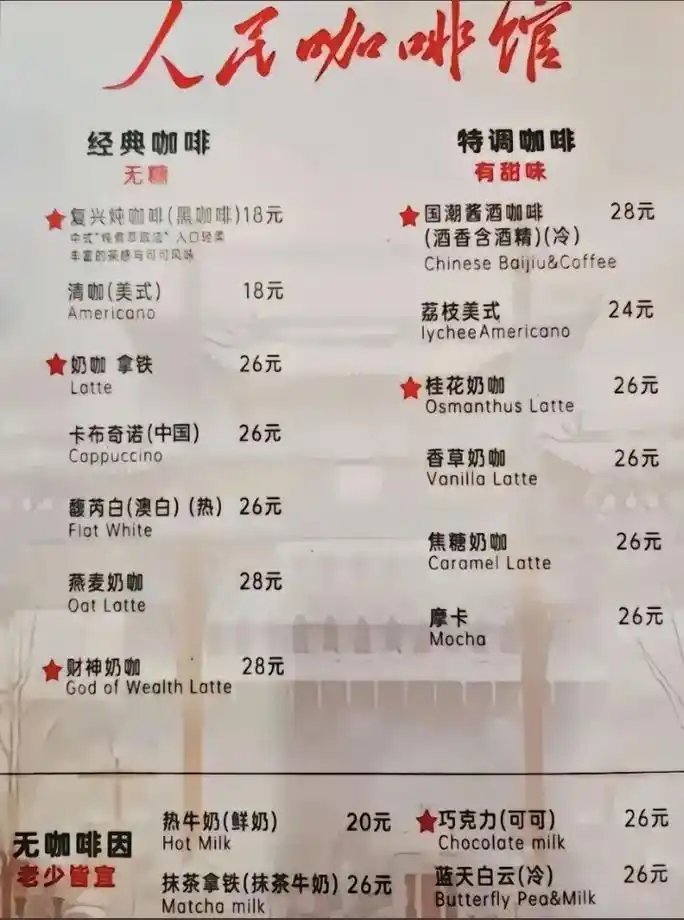 人民咖啡馆
经典咖啡
无糖
复兴炖咖啡(黑咖啡)18元
中式"炖煮萃取法"入口轻柔
丰富的茶感与可可风味
清咖(美式) 18元
Americano
奶咖 拿铁 26元
Latte
卡布奇诺(中国) 26元
Cappuccino
馥芮白(澳白)(热) 26元
Flat White
燕麦奶咖 28元
Oat Latte
财神奶咖 28元
God of Wealth Latte
特调咖啡
有甜味
国潮酱酒咖啡 28元
(酒香含酒精)(冷)
Chinese Baijiu&Coffee
荔枝美式 24元
lycheeAmericano
桂花奶咖 26元
Osmanthus Latte
香草奶咖 26元
Vanilla Latte
焦糖奶咖 26元
Caramel Latte
摩卡 26元
Mocha
无咖啡因
老少皆宜
热牛奶(鲜奶) 20元
Hot Milk
抹茶拿铁(抹茶牛奶) 26元
Matcha milk
巧克力(可可) 26元
Chocolate milk
蓝天白云(冷) 26元
Butterfly Pea&Milk